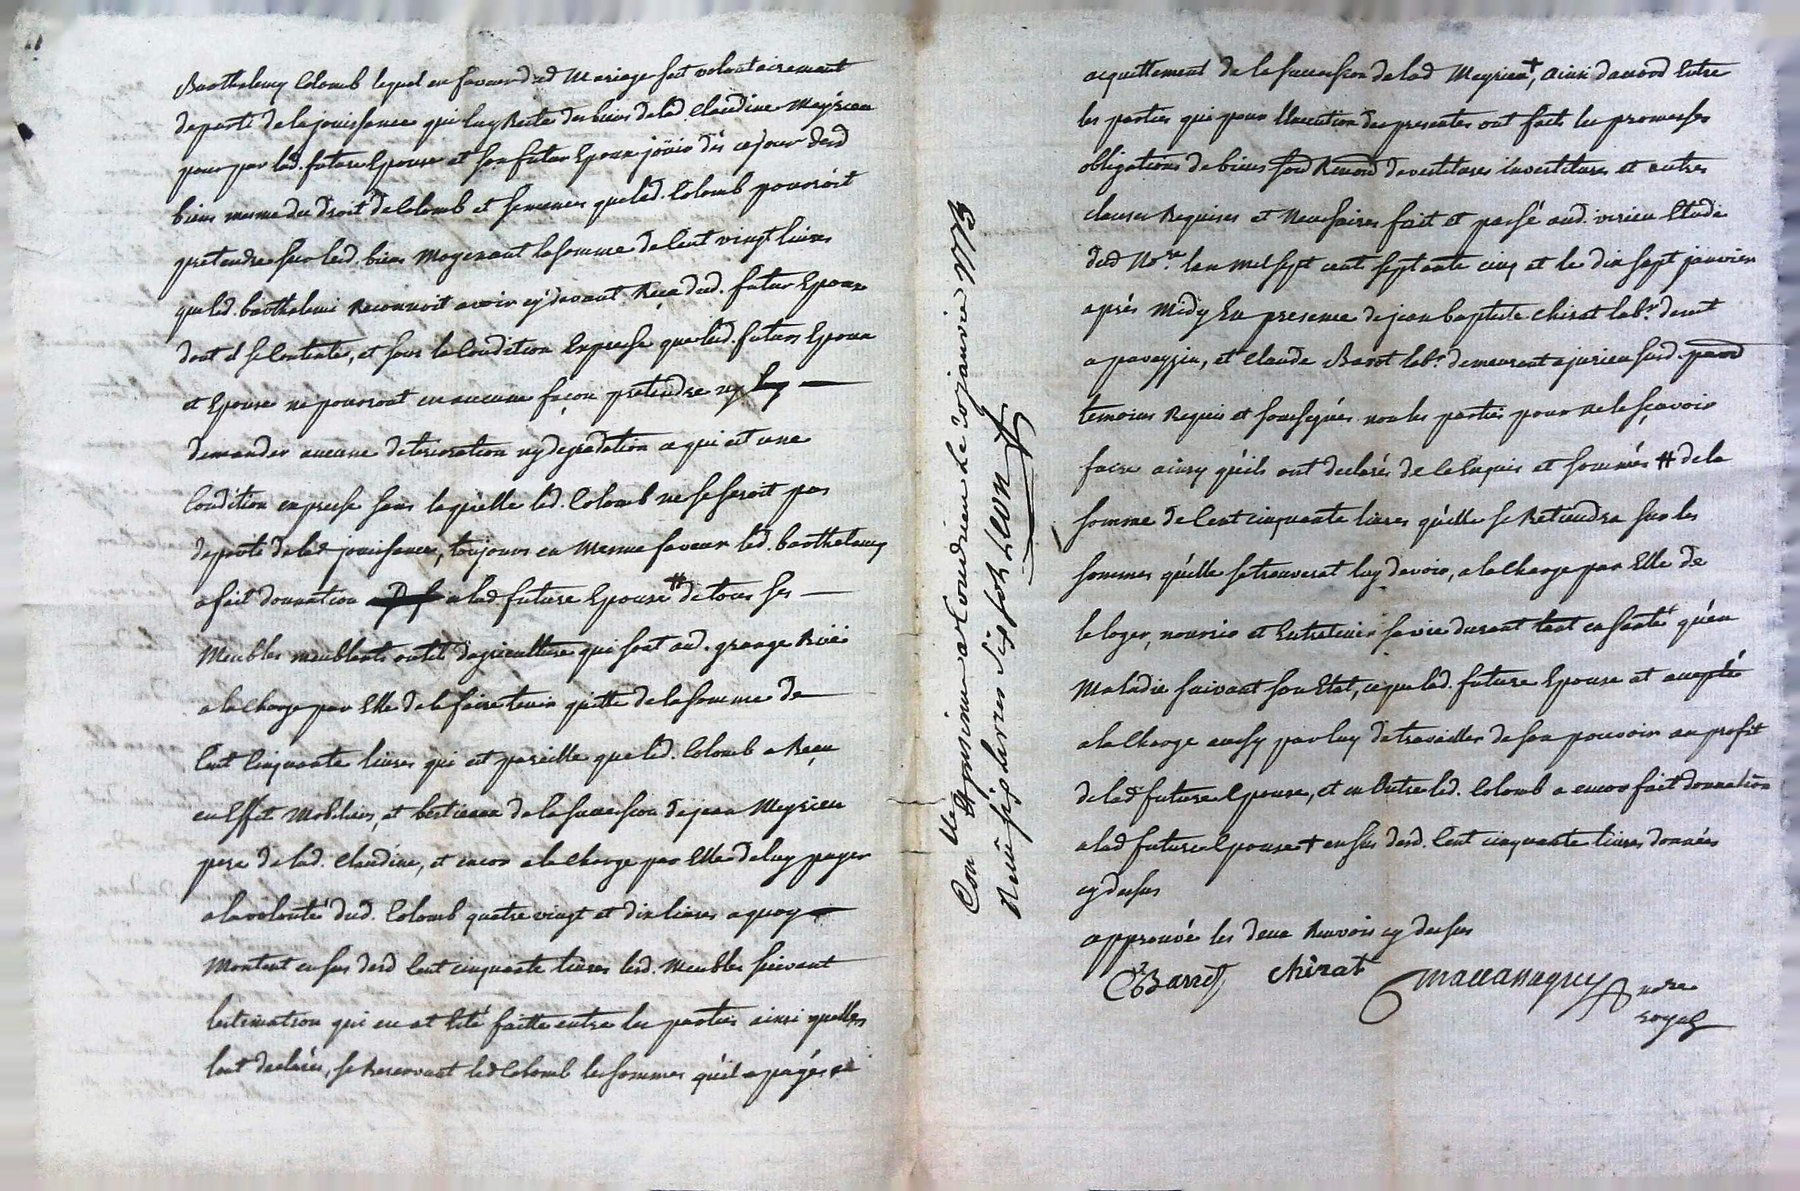 Barthelemy Colomb lequel en faveur dud Mariage fait volontairement
departi de la jouissance qui luy Reste des biens de lad Claudine Meyrieu
pour par lad. future Epouse et son futur Epoux joüir dès ce jour desd
biens mesme du droit de Colomb et semences que led. Colomb pouroit
pretendre sur lesd. biens Moyenant la somme de Cent vingt livres
que led. barthelemi Reconnoit avoir cy devant Reçu dud. futur Epoux
dont il se Contente, et sous la Condition Expresse que lesd. futurs Epoux
et Epouse ne pouront en aucune façon pretendre ny luy
demander aucune deterioration ny degradation ce qui est une
Condition expresse sans laquelle led. Colomb ne se seroit pas
departi de lad jouissance, toujours en Mesme faveur led. barthelemy
a fait donnation a lad. future Epouse # de tous ses
Meubles meublants outil d'agriculture qui sont aud. grange
a la Charge par Elle de le faire tenir quitte de la somme de
Cent Cinquante livres qui est pareille que led. Colomb a Reçu
en Effet Mobiliers, et bestieaux de la succession de jean Meyrieu
pere de lad. Claudine, et encor a la Charge par Elle de luy payer
a la volonté dud. Colomb quatre vingt et dix livres a quoy
Montent en sus desd Cent cinquante livres lesd. Meubles suivant
lestimation qui en at Eté faitte entre les parties ainsi quelles
lont declarés, se Reservant led Colomb les sommes qu'il a payés en
Con^lle Reçu six livres six sols LEON
acquittement de la succession de lad Meyrieu +, ainsi dacord Entre
les parties qui pour l'Execution des presentes ont faits les promesses
obligations de biens devestitures investitures et autres
clauses Requises et Necessaires fait et passé aud. virieu Etude
dud No^re lan mil sept cent septante cinq et le dix sept janvier
après Midy En presence de jean baptiste Chirat lab^r demt
a pavezzin, et Claude Barot lab^r demeurant a jurieu susd.
temoins Requis et soussignés non les parties pour ne le sçavoir
faire ainsy qu'ils ont declarés de ce Enquis et sommés # de la
somme de Cent cinquante livres qu'elle se Retiendra sur les
sommes qu'elle se trouverat luy devoir, a la Charge par Elle de
le loger, nourrir et Entretenir sa vie durant tant en santé qu'en
Maladie suivant son Etat, ce que lad. future Epouse at accepté
a la Charge aussy par luy de travailler de son pouvoir au profit
de lad future Epouse, et en Outre led. Colomb a encor fait donnation
a lad future Epouse + en sus desd. Cent cinquante livres donnés
cy dessus
approuvé les deux Renvois cy dessus
C Barrot Chirat no^re
royal